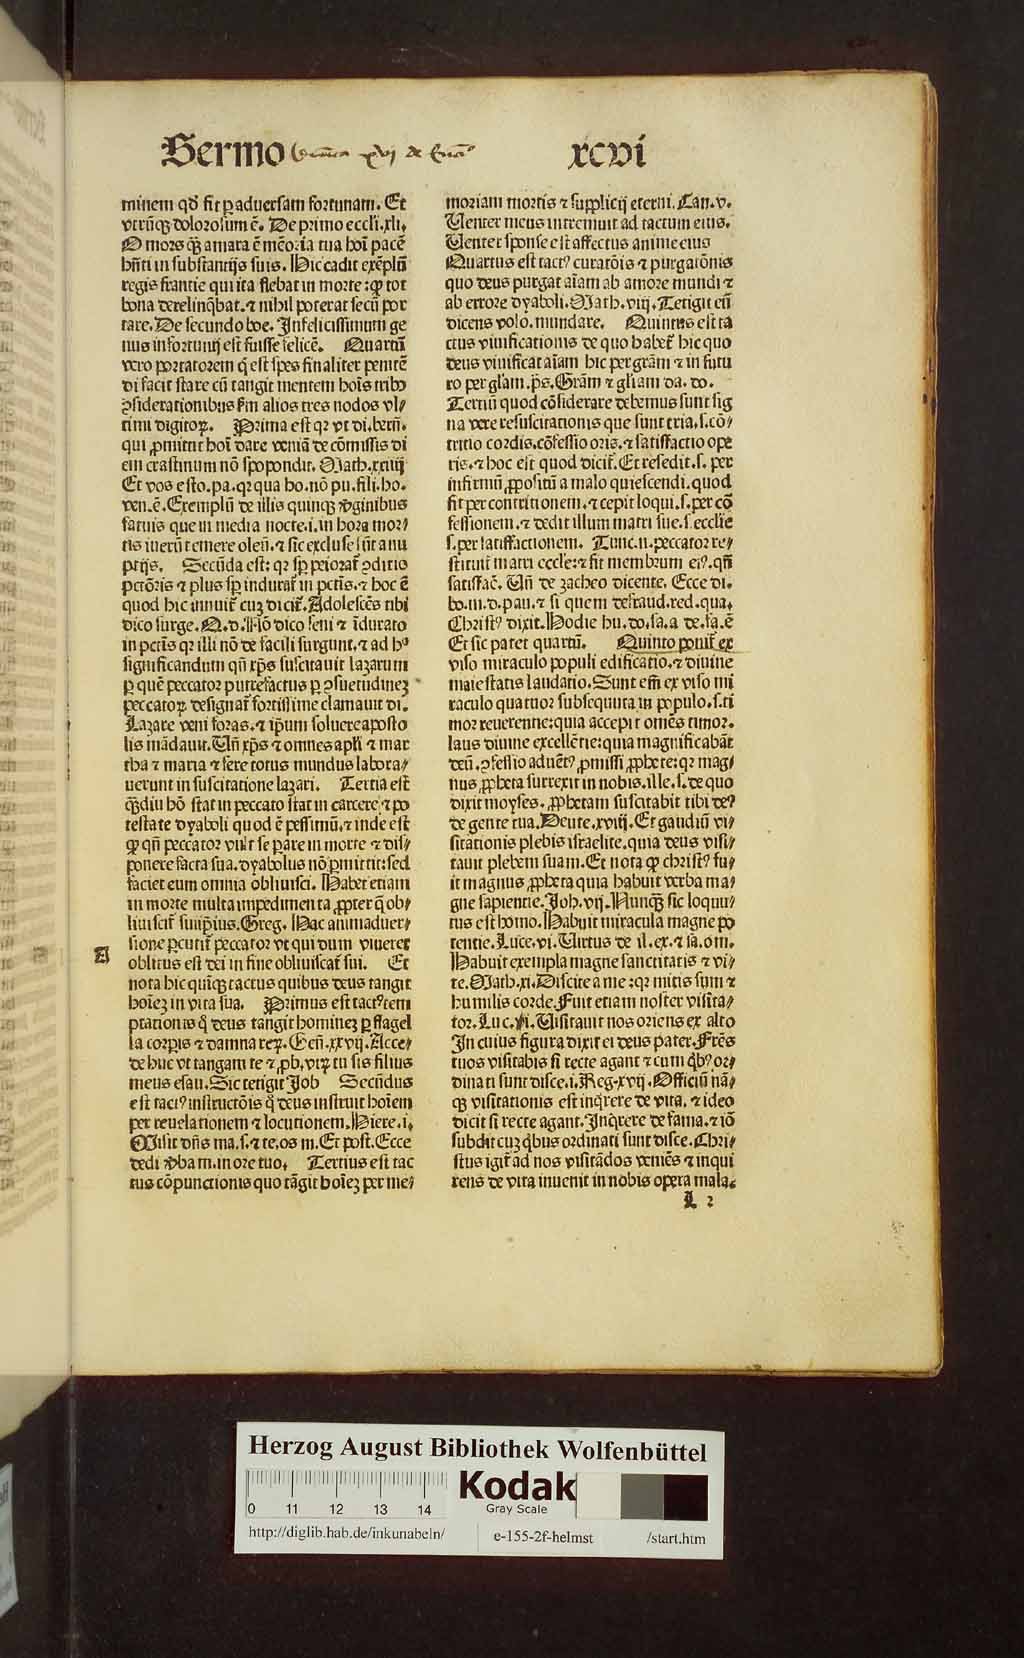 Sermo xcvi
minem qđ fit ꝑ aduersam fortunam. Et
vtrūqꝫ dolorosum ē. De primo eccli. xli.
O mors qꝫ amara ē mēoria tua hoī pacē
hn̄ti in substantijs suis. Hic cadit exēplū
regis francie qui ita flebat in morte: ꝙ tot
bona derelinq̄bat. ⁊ nihil poterat secū por
tare. De secundo boe. Infelicissimum ge
nus infortunij est fuisse felicē. Quartū
vero portatorem q̄ est spes finaliter penitē
di facit stare cū tangit mentem hoīs tribꝰ
ꝯsiderationibus s̄m alios tres nodos vl/
timi digitoꝝ. Prima est qꝛ vt di. bern̄.
qui ꝓmittit hoī dare veniā de cōmissis di
em crastinum nō spopondit. Math. xxiiij
Et vos esto. pa. qꝛ qua ho. nō pu. fili. ho.
ven. ē. Exemplū de illis quinqꝫ ꝟginibus
fatuis que in media nocte .i. in hora mor/
tis iuerūt emere oleū. ⁊ sic excluse sūt a nu
ptijs. Secūda est: qꝛ sꝑ peioraī ꝯditio
pctōris ⁊ plus sꝑ induraī in pctīs. ⁊ hoc ē
quod hic innuiī cuꝫ diciī. Adolescēs tibi
dico surge. Q. d. Nō dico seni ⁊ īdurato
in pctīs qꝛ illi nō de facili surgunt. ⁊ ad hꝰ
significandum qn̄ xp̄s suscitauit lazarum
ꝑ quē peccator putrefactus ꝑ ꝯsuetudineꝫ
peccatoꝝ designaī fortissime clamauit di.
Lazare veni foras. ⁊ ip̄um soluere aposto
lis mādauit. Un̄ xp̄s ⁊ omnes apl̄i ⁊ mar
tha ⁊ maria ⁊ fere totus mundus labora/
uerunt in suscitatione lazari. Tertia est
qꝫdiu hō stat in peccato stat in carcere ⁊ po
testate dyaboli quod ē pessimū. ⁊ inde est
ꝙ qn̄ peccator vult se pare in morte ⁊ dis/
ponere facta sua. dyabolus nō ꝑmittit: sed
faciet eum omnia obliuisci. Habet etiam
in morte multa impedimenta ꝓpter q̄ ob/
liuisciī suiip̄ius. Greg. Hac animaduer/
A
sione ꝑcutiī peccator vt qui dum viueret
oblitus est dei in fine obliuiscaī sui. Et
nota hic quīqꝫ tactus quibus deus tangit
hoīeꝫ in vita sua. Primus est tactꝰ tem
ptationis q̄ deus tangit homineꝫ ꝑ flagel
la corꝑis ⁊ damna reꝝ. Gen̄. xxvij. Acce/
de huc vt tangam te ⁊ ꝓb. vtꝝ tu sis filius
meus esau. Sic tetigit Job Secūdus
est tactꝰ instructōis q̄ deus instruit hoīem
per reuelationem ⁊ locutionem. Hiere. i.
Misit dn̄s ma. s. ⁊ te. os m. Et post. Ecce
dedi ꝟba m. in ore tuo. Tertius est tac
tus cōpunctionis quo tāgit hoīeꝫ per me/
moriam mortis ⁊ supplicij eterni. Can. v.
Uenter meus intremuit ad tactum eius.
Uenter sponse est affectus anime eius
Quartus est tactꝰ curatōis ⁊ purgatōnis
quo deus purgat aīam ab amore mundi ⁊
ab errore dyaboli. Math. viij. Tetigit eū
dicens volo. mundare. Quintus est ta
ctus viuificationis de quo habeī hic quo
deus viuificat aīam hic per grām ⁊ in futu
ro per gl̄am. p̄s. Grām ⁊ gl̄iam da. do.
Tertiū quod cōsiderare debemus sunt sig
na vere resuscitationis que sunt tria. s. cō/
tritio cordis. cōfessio oris. ⁊ satisfactio ope
ris. ⁊ hoc est quod diciī. Et resedit. s. per
infirmū ꝓpositū a malo quiescendi. quod
fit per contritionem. ⁊ cepit loqui. s. per cō
fessionem. ⁊ dedit illum matri sue. s. ecclīe
s. per satisfactionem. Tunc. n. peccator re/
stituiī matri eccl̄e: ⁊ fit membrum eiꝰ. qn̄
satisfac̄. Un̄ de zacheo dicente. Ecce di.
bo. m. d. pau. ⁊ si quem defraud. red. qua.
Christꝰ dixit. Hodie hu. do. sa. a de. fa. ē
Et sic patet quartū. Quinto poniī ex
viso miraculo populi edificatio. ⁊ diuine
maiestatis laudatio. Sunt em̄ ex viso mi
raculo quatuor subsequuta in populo. s. ti
mor reuerentie: quia accepit omēs timor.
laus diuine excellētie: quia magnificabāt
deū. ꝯfessio aduētꝰ ꝓmissi ꝓphete: qꝛ mag/
nus ꝓpheta surrexit in nobis. ille. s. de quo
dixit moyses. ꝓphetam suscitabit tibi deꝰ
de gente tua. Deute. xviij. Et gaudiū vi/
sitationis plebis israelite. quia deus visi/
tauit plebem suam. Et nota ꝙ christꝰ fu/
it magnus ꝓpheta quia habuit verba ma/
gne sapientie. Joh. vij. Nunqꝫ sic loquu/
tus est homo. Habuit miracula magne po
tentie. Luce. vi. Uirtus de il. ex. ⁊ sa. om.
Habuit exempla magne sanctitatis ⁊ vi/
te. Math. xi. Discite a me: qꝛ mitis sum ⁊
humilis corde. Fuit etiam noster visita/
tor. Luc. i. Uisitauit nos oriens ex alto
In cuius figura dixit ei deus pater. Frēs
tuos visitabis si recte agant ⁊ cum qbꝰ or/
dinati sunt disce. i. Reg. xvij. Officiū nā/
qꝫ visitationis est inqrere de vita. ⁊ ideo
dicit si recte agant. Inqrere de fama. ⁊ iō
subdit cuꝫ qbus ordinati sunt disce. Chri/
stus igiī ad nos visitādos veniēs ⁊ inqui
rens de vita inuenit in nobis opera mala.
L 2
Herzog August Bibliothek Wolfenbüttel
0 11 12 13 14
Kodak
Gray Scale
http://diglib.hab.de/inkunabeln/ e-155-2f-helmst /start.htm